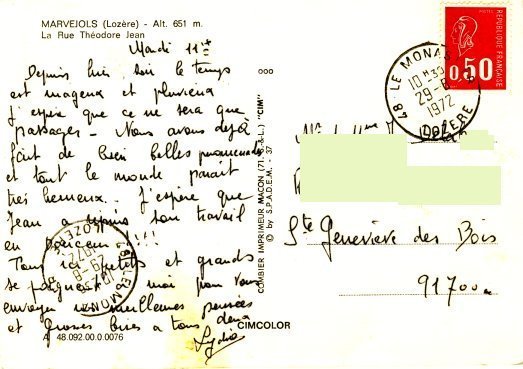 MARVEJOLS (Lozère) - Alt. 651 m.
La Rue Théodore Jean
Mardi 11H
Depuis hier soir le temps
est nuageux et pluvieux
J'espère que ce ne sera que
passager - Nous avons dejà
fait de bien belles promenades
et tout le monde parait
très heureux. J'espère que
Jean a repris son travail
en douceur !!!
Tous ici petits et grands
se joignent à moi pour vous
envoyer nos meilleures pensées
et Grosses bises a tous deux
Lydie
A 48.092.00.0.0076
CIMCOLOR
COMBIER IMPRIMEUR MACON (71. S.-&-L.) "CIM"
© by S.P.A.D.E.M. - 37
POSTES
REPUBLIQUE FRANÇAISE
0,50
48 LE MONAS
10H30
29-8
1972
LOZERE
Ste Geneviève des Bois
91700
48 LE MON
LOZE